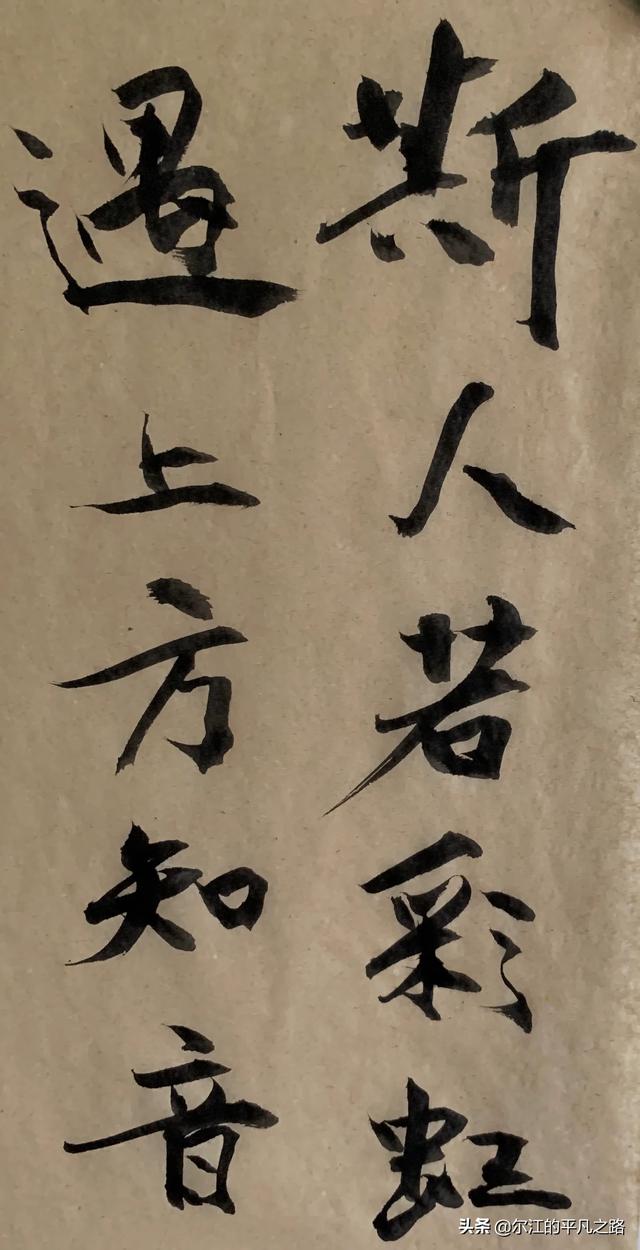 斯人若彩虹
遇上方知音
头条 @尔江的平凡之路